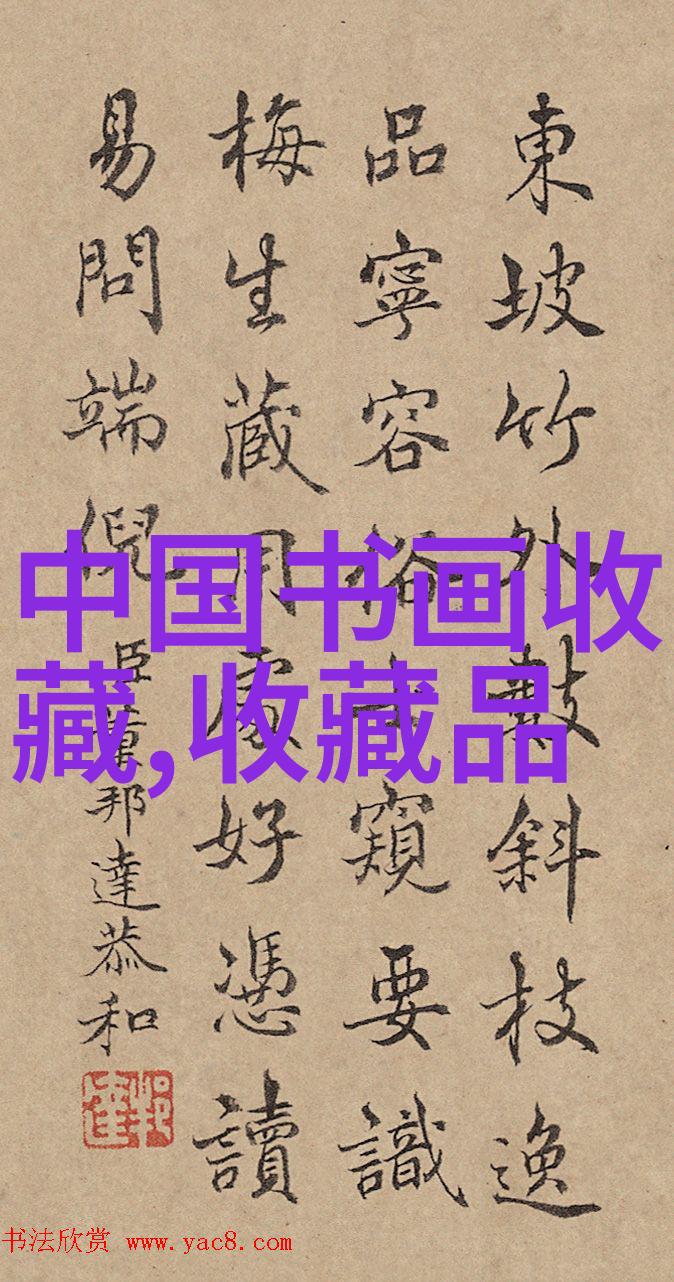 東坡竹外斜枝逸
品寧容俗士窺要識
梅生藏用處好憑讀
易問端倪
臣董邦達恭和
中国书画收
藏,收藏品
书法欣赏 www.yac8.com